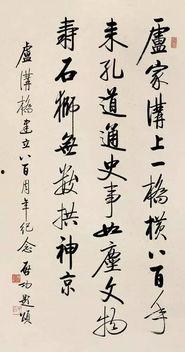 盧家溝上一橋橫八百年
來孔道通史事如塵文物
壽石獅無數拱神京
盧溝橋建立八百周年紀念 啟功題頌